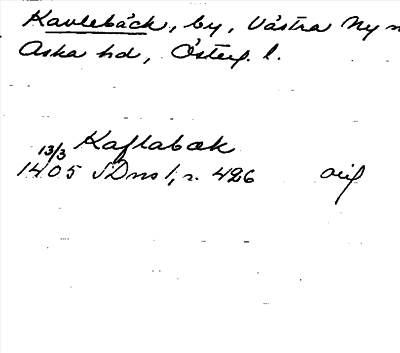 Kavlebäck, by, Västra Ny
Aska hd, Österg. l.
Kaflabæk
13/3
1405 SDns 1, n. 426 orig